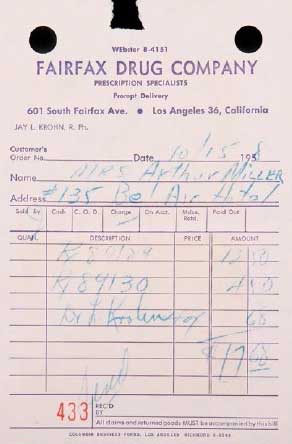 WEbster 8-4151
FAIRFAX DRUG COMPANY
PRESCRIPTION SPECIALISTS
Prompt Delivery
601 South Fairfax Ave. ● Los Angeles 36, California
JAY L. KROHN, R. Ph.
Customer's
Order No. Date 10/15 1958
Name MRS Arthur MILLER
Address #135 Bel Air Hotel
Sold By Cash C. O. D. Charge On Acct. Mdse. Retd. Paid Out
QUAN. DESCRIPTION PRICE AMOUNT
Rx 84130
68
$17
433 REC'D BY
All claims and returned goods MUST be accompanied by this bill